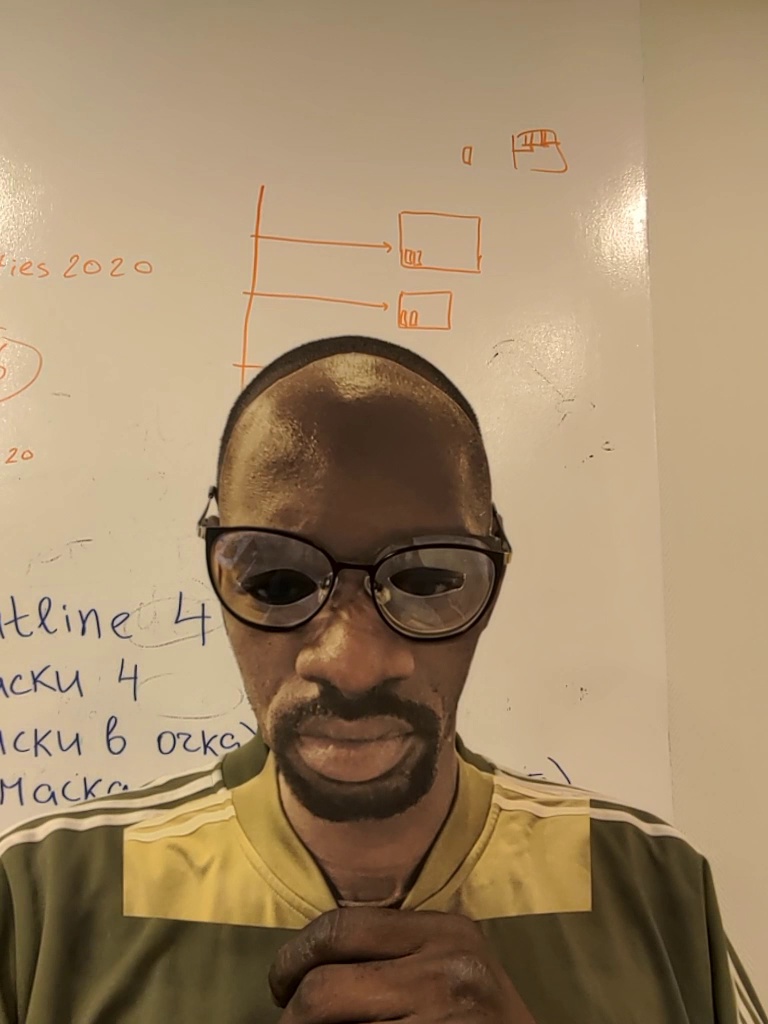 ies 2020
20
tline 4
аски 4
ски в очка
маска